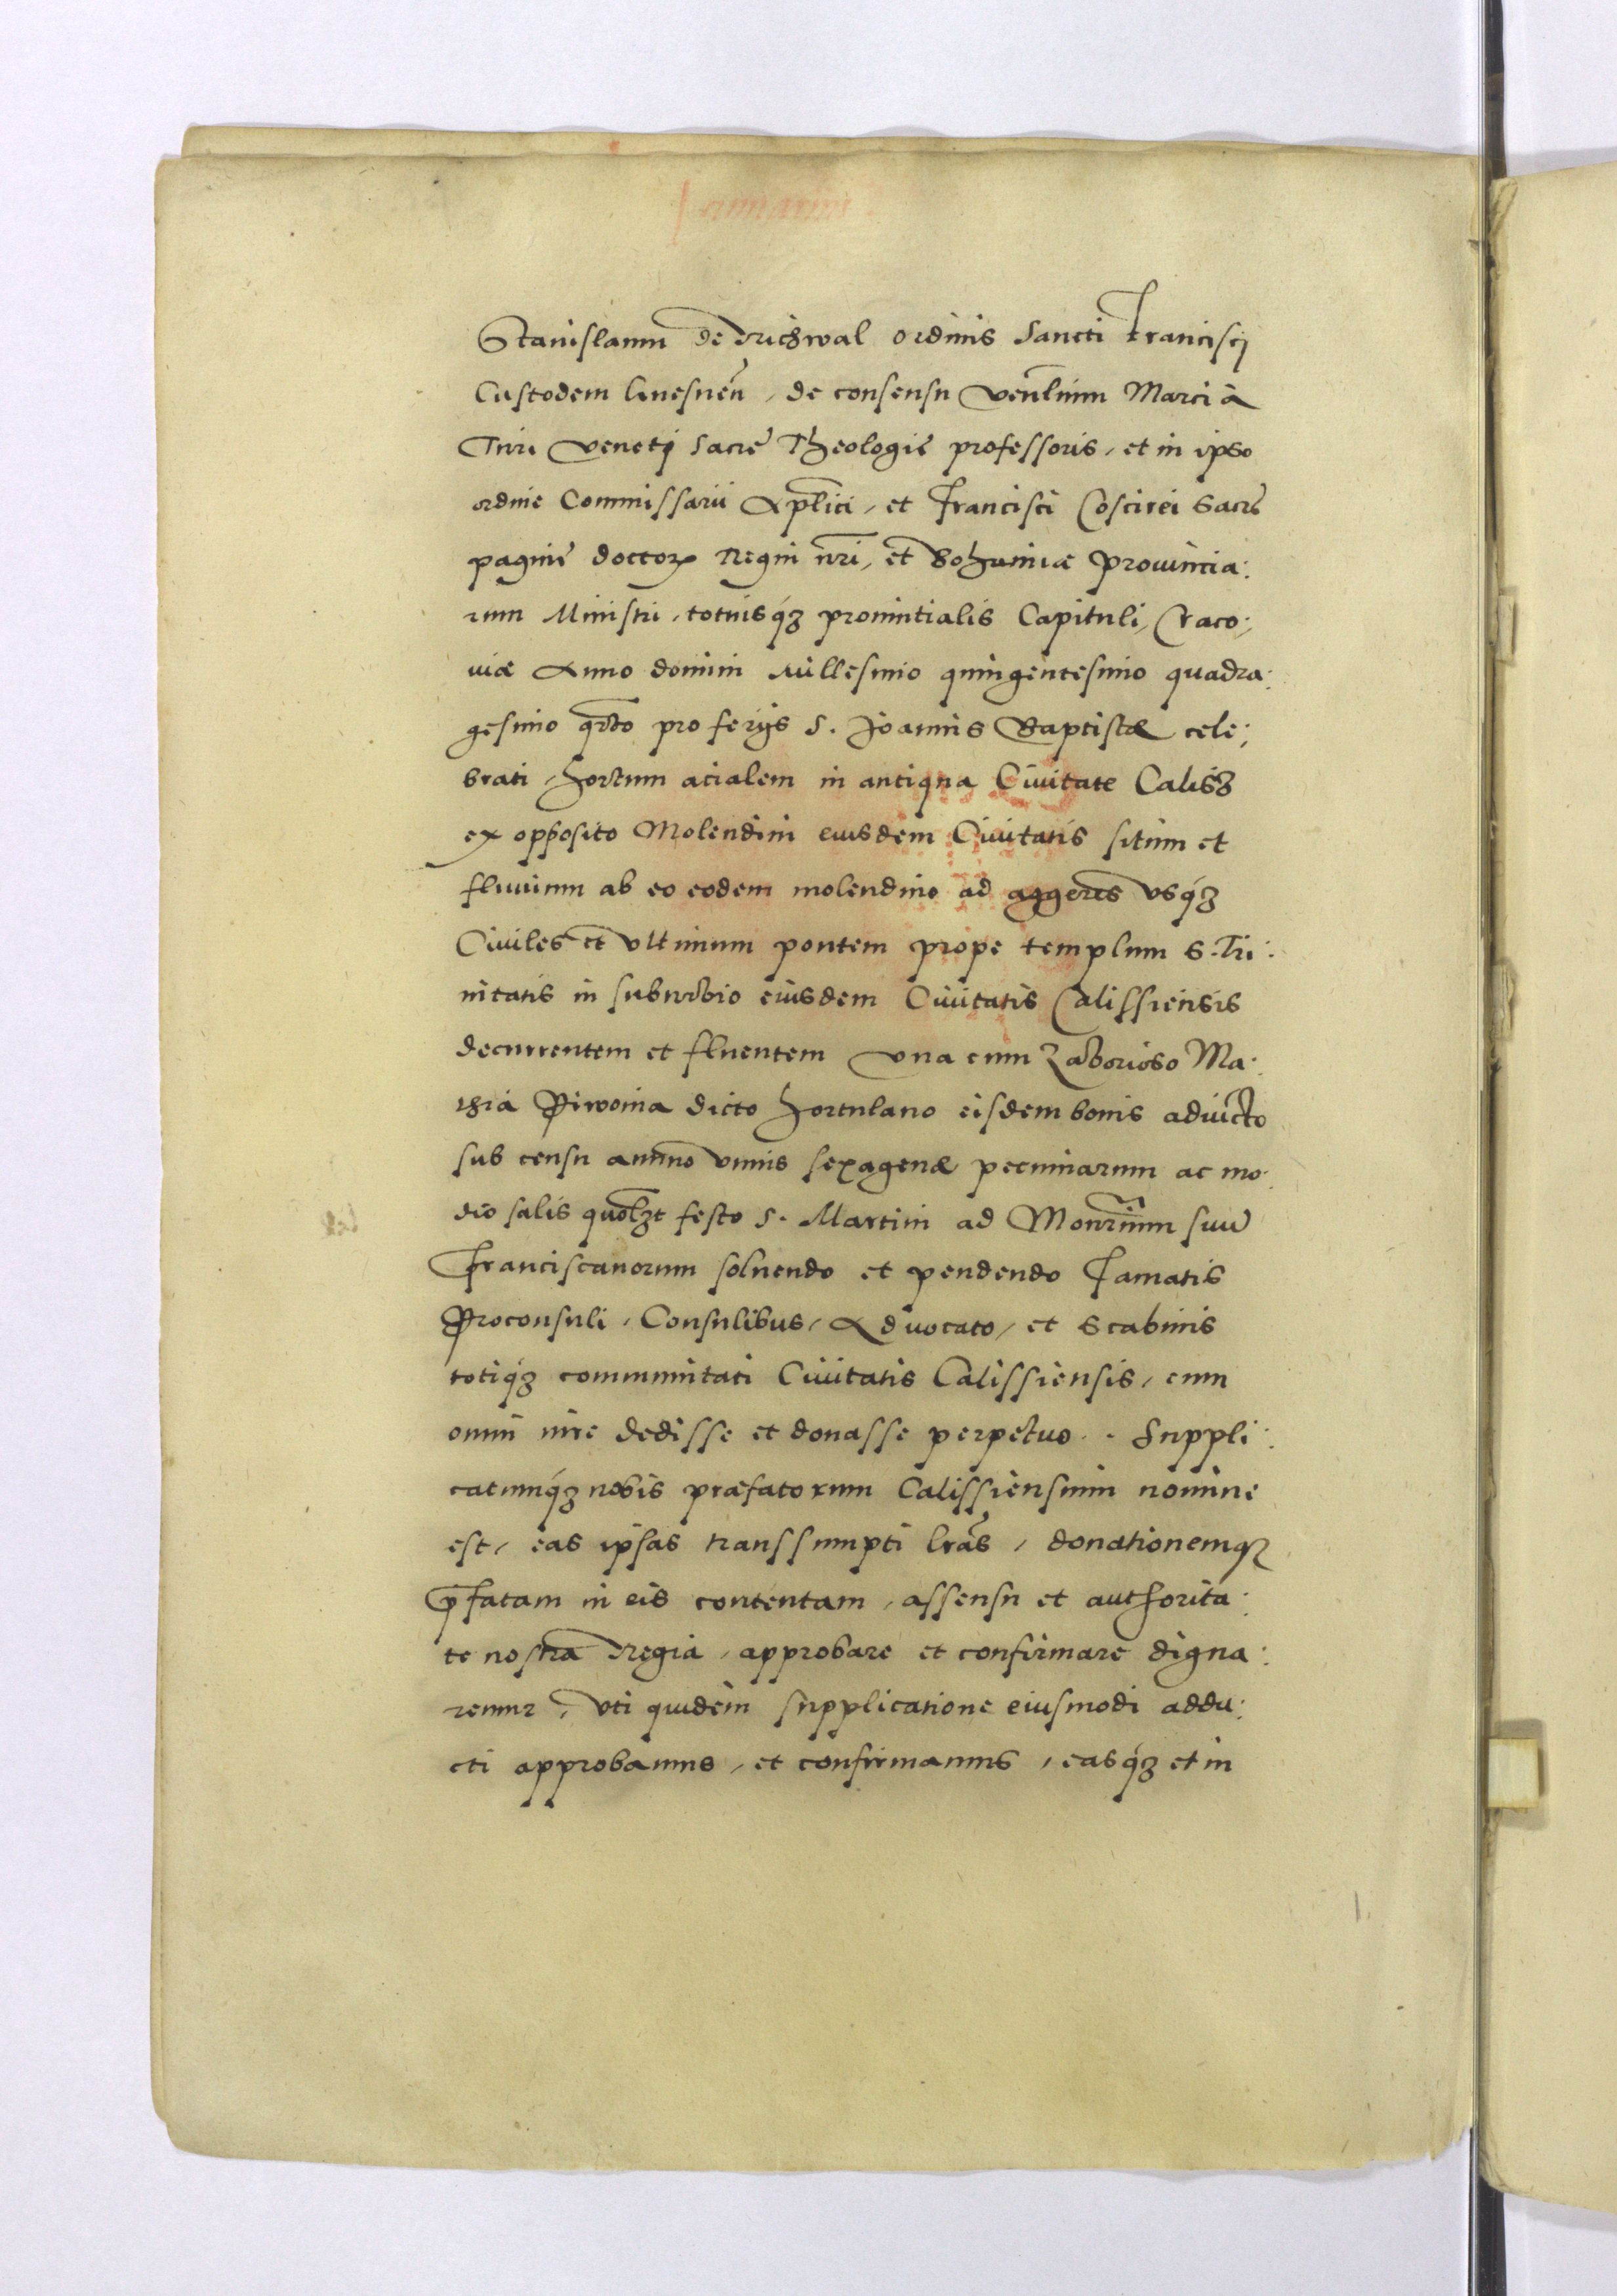 Stanislaum de Richwal ordinis Sancti Francisci
Custodem Gnesnen̄, de consensu Ven̄lium Marci à
Turi Venetij Sacre Theologie professoris, et in ipso
ordine Commissarii Ap̄lici, et Francisci Coscirei Sacre
pagine doctor Regni nr̄i, et Bohemiæ Prouincia:
rum Ministri, totiusq́ꝫ prouintialis Capituli, Craco:
uiæ Anno domini Millesimo quingentesimo quadra:
gesimo qr̄to pro ferijs S. Joannis Baptistæ cele:
brati, hortum acialem in antiqua Ciuitate Calisz
ex opposito Molendini eiusdem Ciuitatis situm et
fluuium ab eo eodem molendino ad aggeres vsq́ꝫ
Ciuiles et vltimum pontem prope templum S. Tri:
nitatis in suburbio eiusdem Ciuitatis Calissiensis
decurrentem et fluentem vna cum laborioso Ma:
thia Piwonia dicto hortulano eisdem bonis adiūcto
sub censu annuo vnius sexagenæ pecuniarum ac mo:
dio salis quolꝫt festo S. Martini ad Monr̄ium suū
Franciscanorum soluendo et pendendo Famatis
Proconsuli, Consulibus, Aduocato, et Scabinis
totiq́ꝫ communitati Ciuitatis Calissiensis, cum
omni iure dedisse et donasse perpetuo. Suppli:
catumq́ꝫ nobis præfatorum Calissiensium nomine
est, eas ipsas transsumpti lr̄as, donationemqꝫ
p̄fatam in eis contentam, assensu et authorita:
te nostra Regia, approbare et confirmare digna:
remur, vti quidem supplicatione eiusmodi addu:
cti approbamus, et confirmamus, easq́ꝫ et in